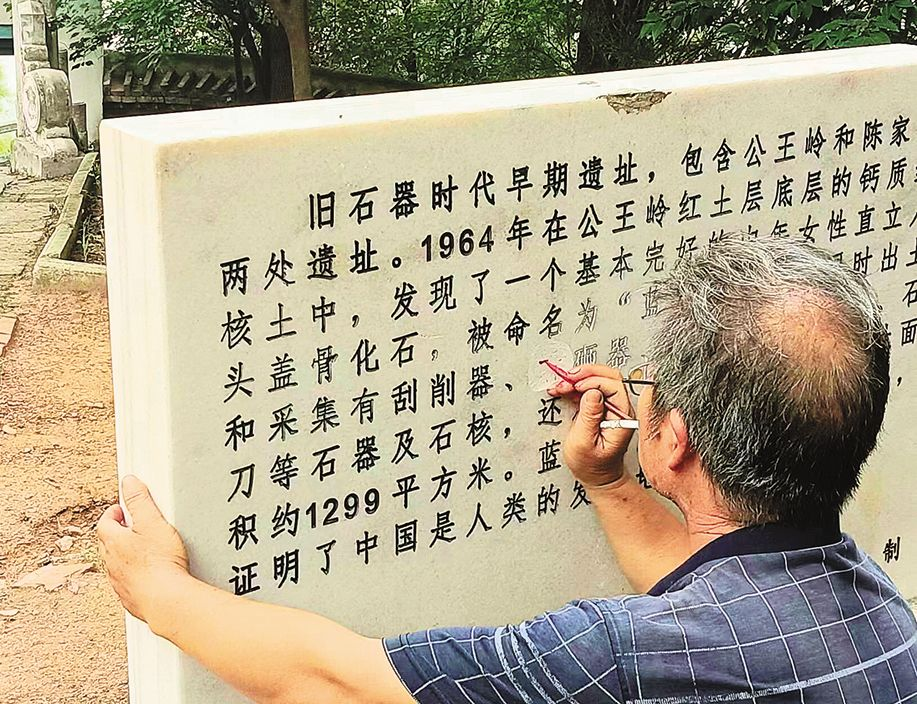 旧石器时代早期遗址，包含公王岭和陈家
两处遗址。1964年在公王岭红土层底层的钙质
核土中，发现了一个基本完好的中年女性直立
头盖骨化石，被命名为“蓝 时出土
和采集有刮削器、 器 石
刀等石器及石核，还 面
积约1299平方米。蓝
证明了中国是人类的发
制